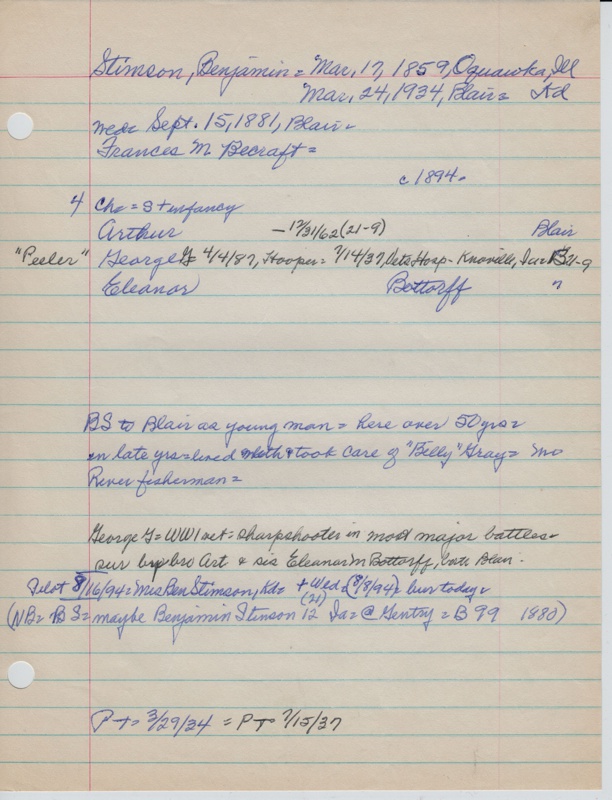 Stimson, Benjamin = Mar. 17, 1859, Oquawka, Ill
Mar. 24, 1934, Blair = Kd
wed = Sept. 15, 1881, Blair =
Frances M Becraft =
c 1894.
4 Ch = 3 + infancy
Arthur - 12/31/62 (21-9) Blair
"Peeler" George G = 4/4/87, Hooper = 7/14/37, Vets Hosp = Knoxville, Ia = B 21-9
Eleanor Bottorff "
BS to Blair as young man = here over 50 yrs =
in late yrs = lived with & took care of "Billy" Gray = Mo
River fisherman =
George G = WW1 vet = sharpshooter in most major battles =
sur by bro Art & sis Eleanor M Bottorff, both Blair.
Pilot 8/16/94 = Mrs Ben Stimson, Kd = + Wed = (8/8/94) = bur today =
(21)
(NB = BS = maybe Benjamin Stinson 12 Ia = @ Gentry = B 99 1880)
P T = 3/29/34 = P T = 7/15/37